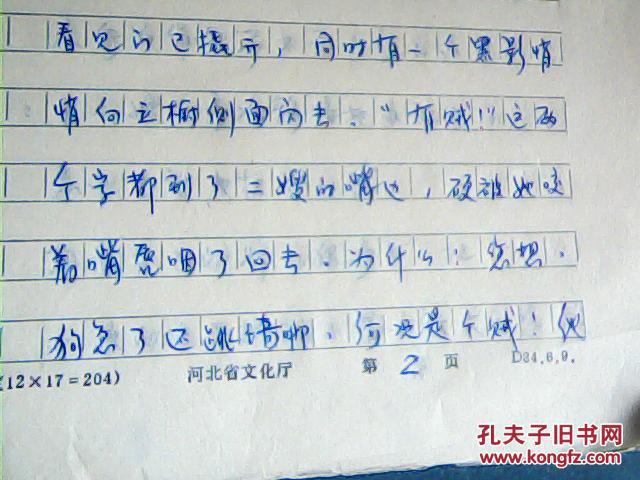 看见门已撬开，同时有一个黑影悄
悄向立柜侧面闪去。“有贼！”这两
个字都到了二嫂的嘴边，硬被她咬
着嘴唇咽了回去。为什么？您想，
狗急了还跳墙哪，何况是个贼！他
(12×17=204) 河北省文化厅 第 2 页 D84.6.9.
孔夫子旧书网
www.kongfz.com